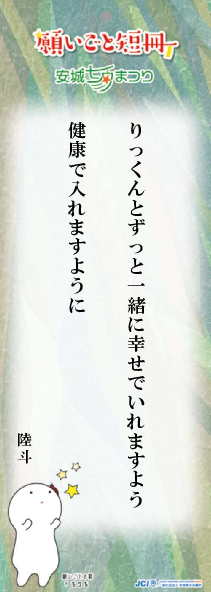 願いごと短冊
安城七夕まつり
りっくんとずっと一緒に幸せでいれますよう
健康で入れますように
陸斗
JCI